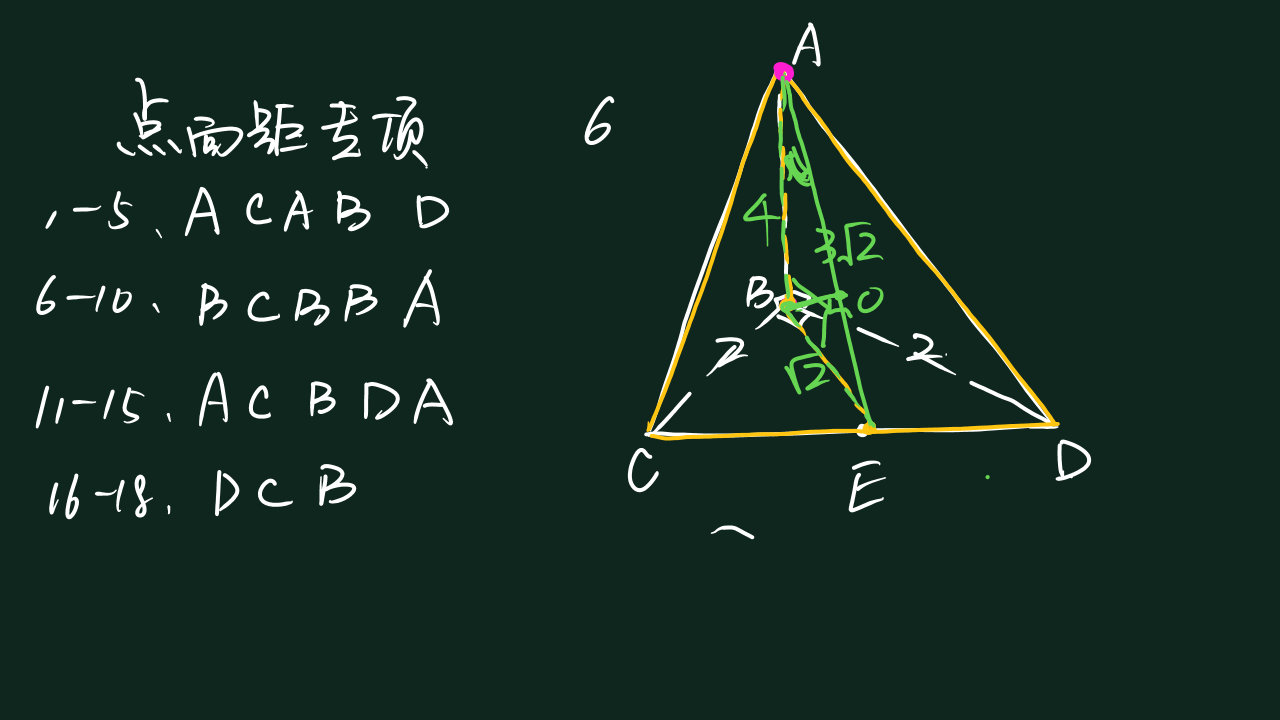 点面距专项
1-5、A C A B D
6-10、B C B B A
11-15、A C B D A
16-18、D C B
6
A
4
3√2
B
O
2
√2
2
C
E
D